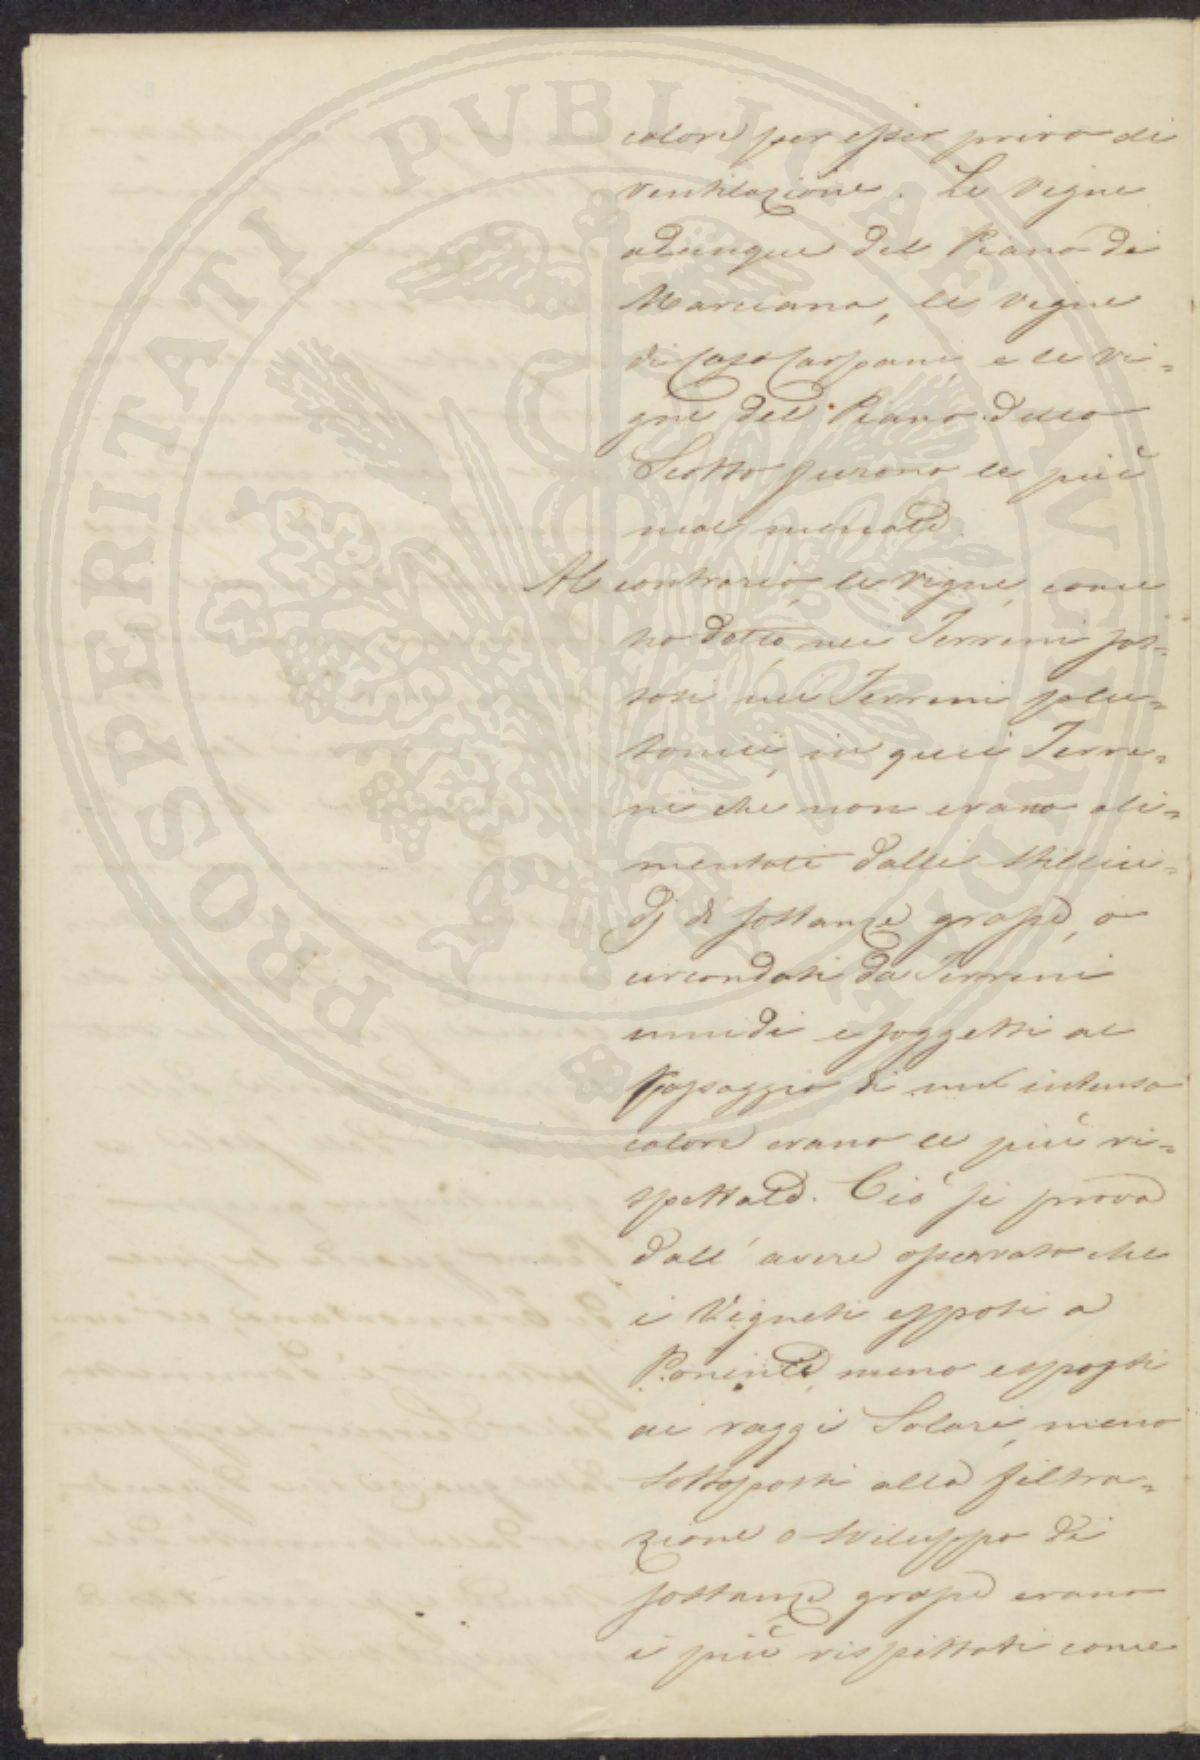 PROSPERITATI PUBLICAE AUGENDAE
calore per esser privo di
ventilazione. Le vigne
adunque del Piano di
Marciana, le vigne
di Caso e le vi=
gne del Piano detto
Scotto furono le più
mal menate.
Al contrario, le vigne, come
ho detto, nei Terreni sas=
sosi nei Terreni plu=
tonici, in quei Terre=
ni che non erano ali=
mentati dalli stillici=
dj di sostanze grasse, o
circondati da Terreni
umidi e soggetti al
passaggio di un intenso
calore erano le più ri=
spettate. Ciò si prova
dall' avere osservato che
i Vigneti esposti a
Ponente, meno esposti
ai raggi Solari, meno
sottoposti alla filtra=
zione o sviluppo di
sostanze grasse erano
i più rispettati come